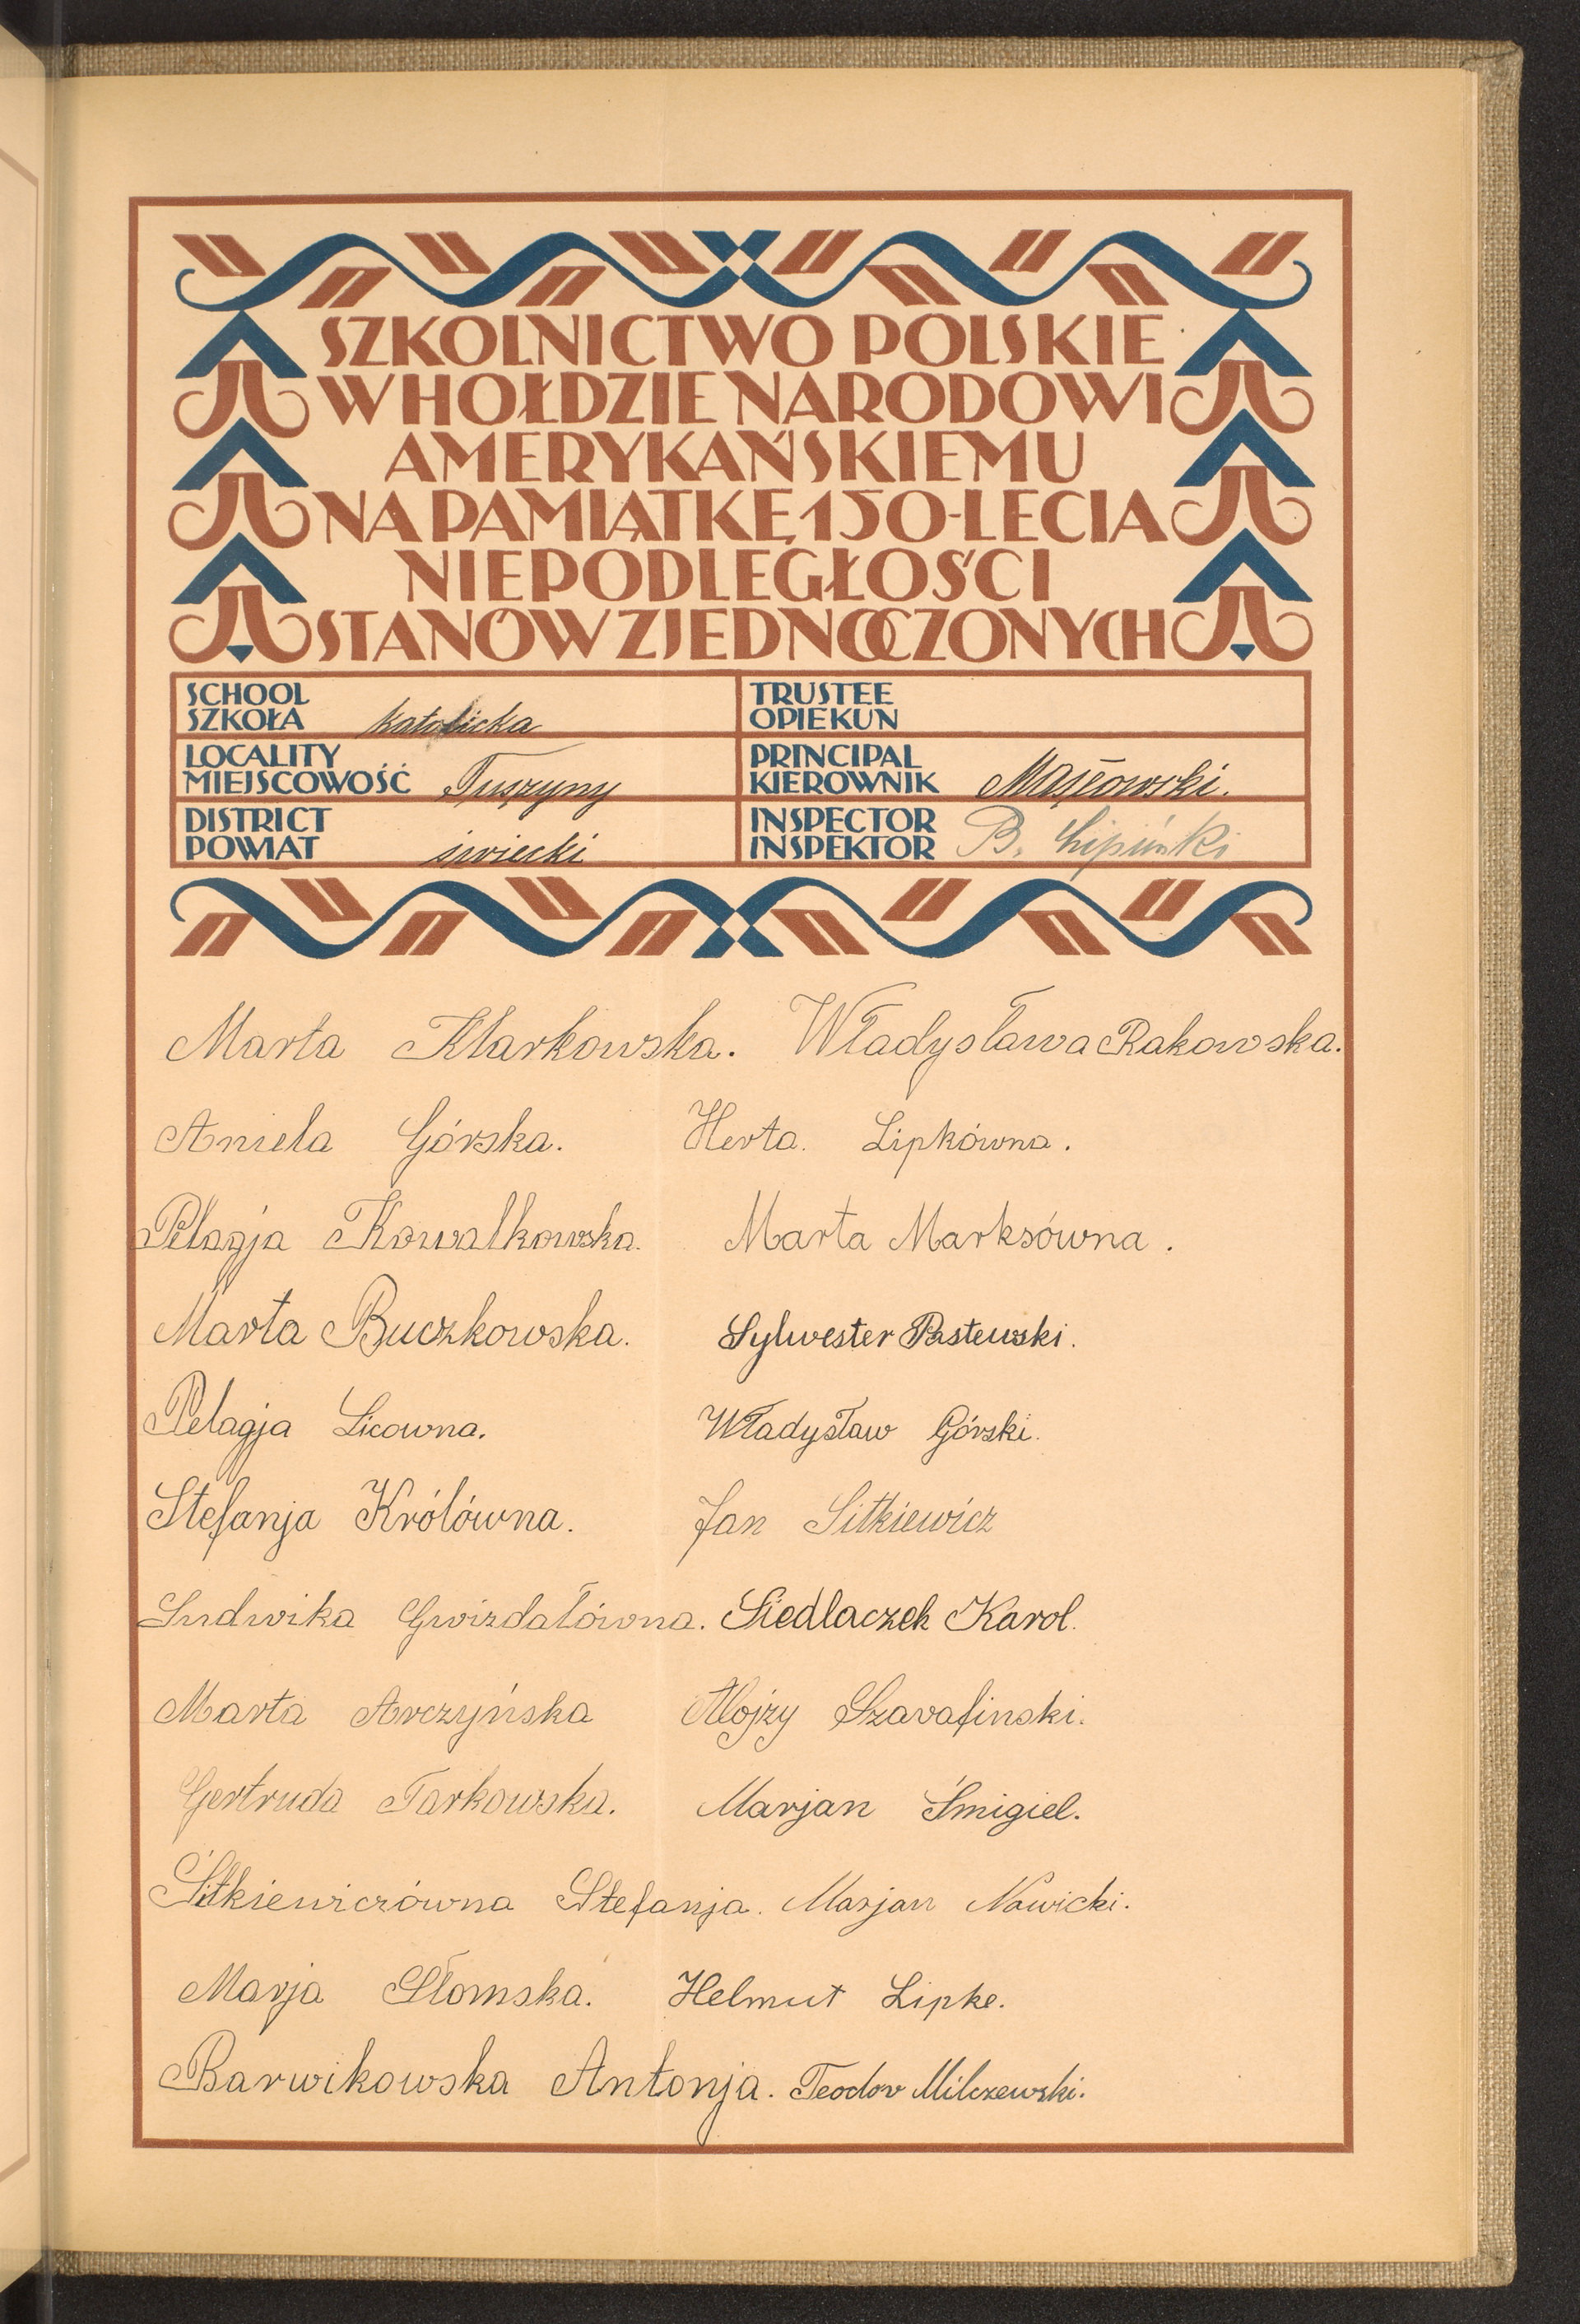 SZKOLNICTWO POLSKIE
W HOŁDZIE NARODOWI
AMERYKAŃSKIEMU
NA PAMIĄTKĘ 150-LECIA
NIEPODLEGŁOŚCI
STANÓW ZJEDNOCZONYCH
SCHOOL
SZKOŁA katolicka
TRUSTEE
OPIEKUN
LOCALITY
MIEJSCOWOŚĆ Tuszyny
PRINCIPAL
KIEROWNIK
DISTRICT
POWIAT świecki
INSPECTOR
INSPEKTOR B. Lipiński
Marta Klarkowska. Władysława Rakowska.
Aniela Górska. Herta. Lipkówna.
Pelagja Kowalkowska. Marta Marksówna.
Marta Buczkowska. Sylwester Pastewski.
Pelagja Licowna. Władysław Górski.
Stefanja Królówna. Jan Sitkiewicz
Ludwika Gwizdałówna. Siedlaczek Karol.
Marta Arczyńska Alojzy Szarafinski.
Gertruda Tarkowska. Marjan Śmigiel.
Sitkiewiczówna Stefanja. Marjan Nowicki.
Marja Słomska. Helmut Lipke.
Barwikowska Antonja. Teodor Milczewski.